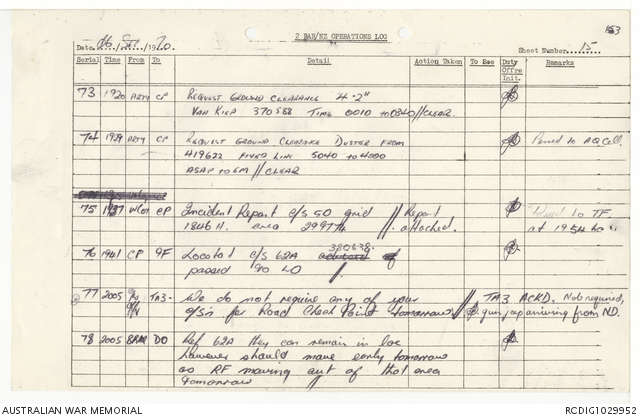 2 RAR/NZ OPERATIONS LOG
153
Date 06 / / 1970.
Sheet Number 15
Serial Time From To Detail Action Taken To See Duty Offrs Init. Remarks
73 1920 ARTY CP REQUEST GROUND CLEARANCE 4.2"
VAN KIEP 370588 TIME 0010 to 0340 // CLEAR.
74 1929 ARTY CP REQUEST GROUND CLEARANCE DUSTER FROM Passed to AQ Cell.
419622 FIXED LINE 5040 to 4000
ASAP to 6M // CLEAR
75 1937 CP Incident Report c/s 50 grid // Report to TF.
1846 H. area attached. at 1954 hrs
76 1941 CP 9F Located c/s 62A 380638.
passed to LO //
77 2005 TA3. We do not require any of your // TA3 ACKD. Not required,
for Road Check Point tomorrow arriving from ND.
78 2005 BRM DO Ref 62A they can remain in loc
however should move early tomorrow
as RF moving out of that area
tomorrow
AUSTRALIAN WAR MEMORIAL
RCDIG1029952